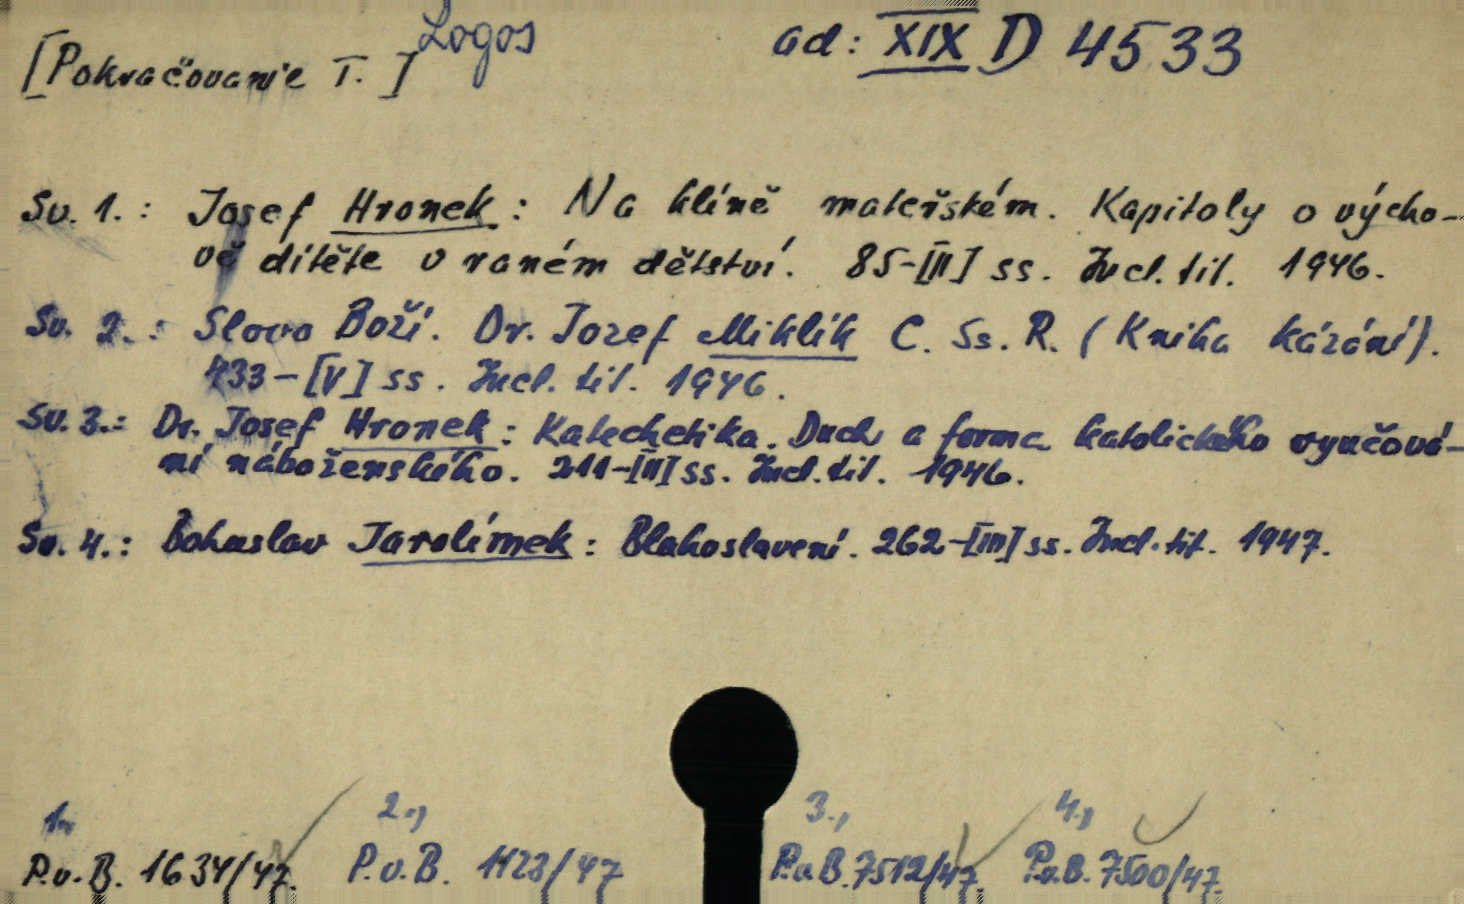 [Pokračovanie I.] Logos ad: XIX D 4533
Sv. 1.: Josef Hronek: Na klíně mateřském. Kapitoly o výcho-
vě dítěte v raném dětství. 85-[II] ss. Incl. tit. 1946.
Sv. 2.: Slovo Boží. Dr. Jozef Miklík C. Ss. R. (Kniha kázání).
433-[V] ss. Incl. tit. 1946.
Sv. 3.: Dr. Josef Hronek: Katechetika. Duch a forma katolického vyučová-
ní náboženského. 211-[III] ss. Incl. tit. 1946.
Sv. 4.: Bohuslav Jarolímek: Blahoslavení. 262-[III] ss. Incl. tit. 1947.
1. 2., 3., 4.,
P.v.B. 1634/47. P.v.B. 1123/47 P.v.B. 7512/47. P.v.B. 7500/47.